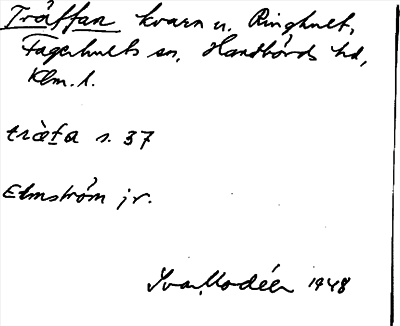 Träffan kvarn u. Ringhult,
Fagerhults sn, Handbörds hd,
Klm. l.
träfa s. 37
Elmström jr.
Ivar Modéer 1948